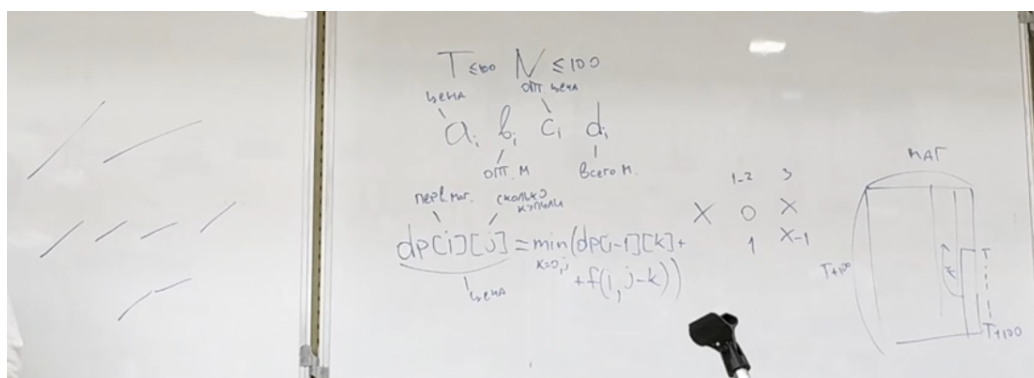 T ≤100 N ≤100
цена опт. цена
a_i b_i c_i d_i
опт. м всего м.
перв. маг. сколько купили
dp[i][j] = min(dp[i-1][k]+
k=0..j
+f(i, j-k))
цена
1-2 3
X 0 X
1 X-1
МАГ
T+100
T
T+100